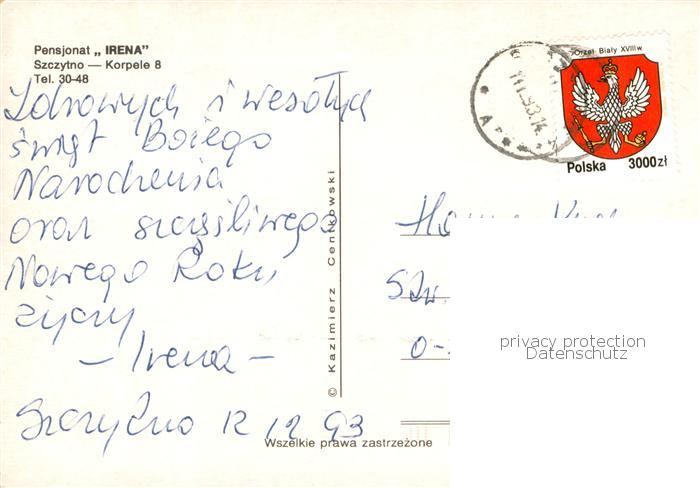 Pensjonat „ IRENA”
Szczytno — Korpele 8
Tel. 30-48
Zdrowych i wesołych
świąt Bożego
Narodzenia
oraz szczęśliwego
Nowego Roku
życzy
– Irena –
Szczytno 12 12 93
© Kazimierz Centkowski
Wszelkie prawa zastrzeżone
Orzeł Biały XVIII w
Polska 3000 zł
privacy protection
Datenschutz